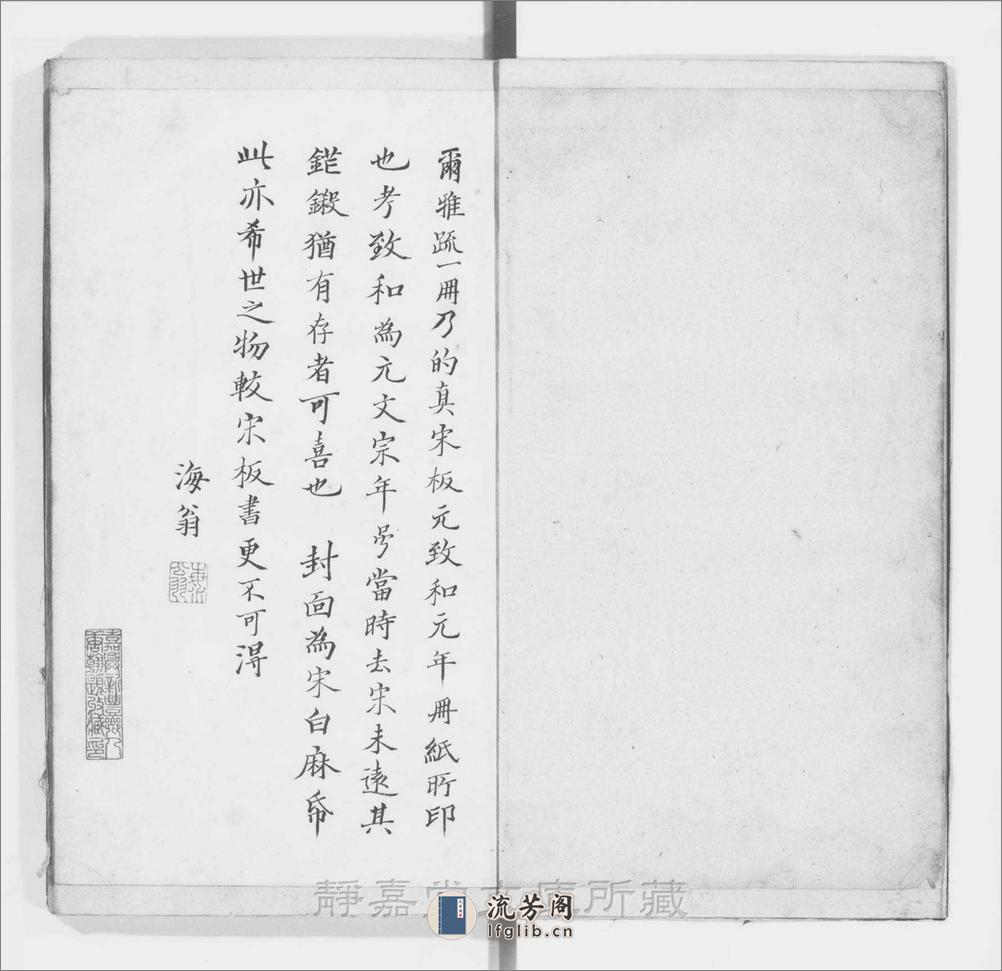 爾雅疏一冊乃的真宋板元致和元年冊紙所印
也考致和為元文宗年号當時去宋未遠其
鎚鍛猶有存者可喜也 封面為宋白麻帋
此亦希世之物較宋板書更不可得
海翁
海翁
嘉興新豐鄉人
唐翰題收藏印
靜嘉堂文庫所藏
流芳阁
lfglib.cn